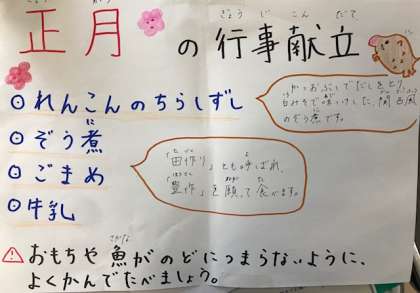 正月の行事献立
しょう がつ
ぎょう じ こん だて
◎れんこんのちらしずし
かつおぶしでだしをとり、
白みそで味つけした、関西風
のぞう煮です。
◎ぞう煮
に
◎ごまめ
「田作り」とも呼ばれ、
「豊作」を願って食べます。
◎牛乳
⚠おもちや魚がのどにつまらないように、
さかな
よくかんでたべましょう。